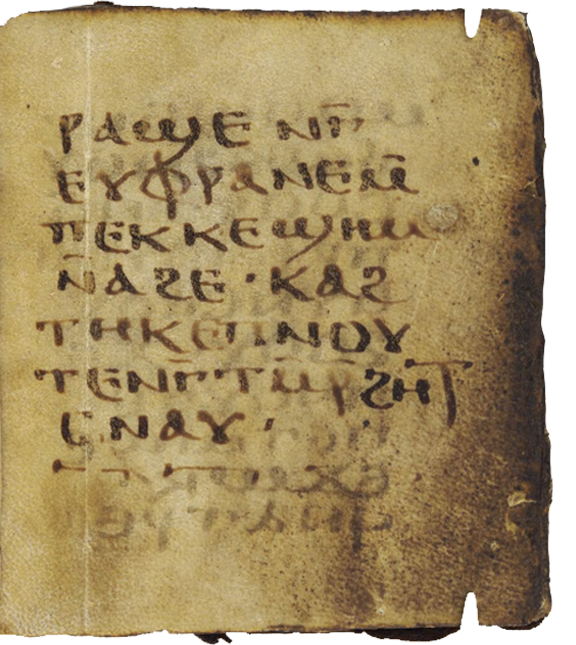 ⲣⲁϣⲉ ⲛⲅ̄
ⲉⲩⲫⲣⲁⲛⲉⲙ̄
ⲡⲉⲕⲕⲉϣⲏⲙ
ⲛ̄ⲁϩⲉ · ⲕⲁϩ
ⲧⲏⲕ ⲉⲡⲛⲟⲩ
ⲧⲉ ⲛⲅ̄ⲧⲙ̄ⲣ̄ϩⲏⲧ
ⲥⲛⲁⲩ ·